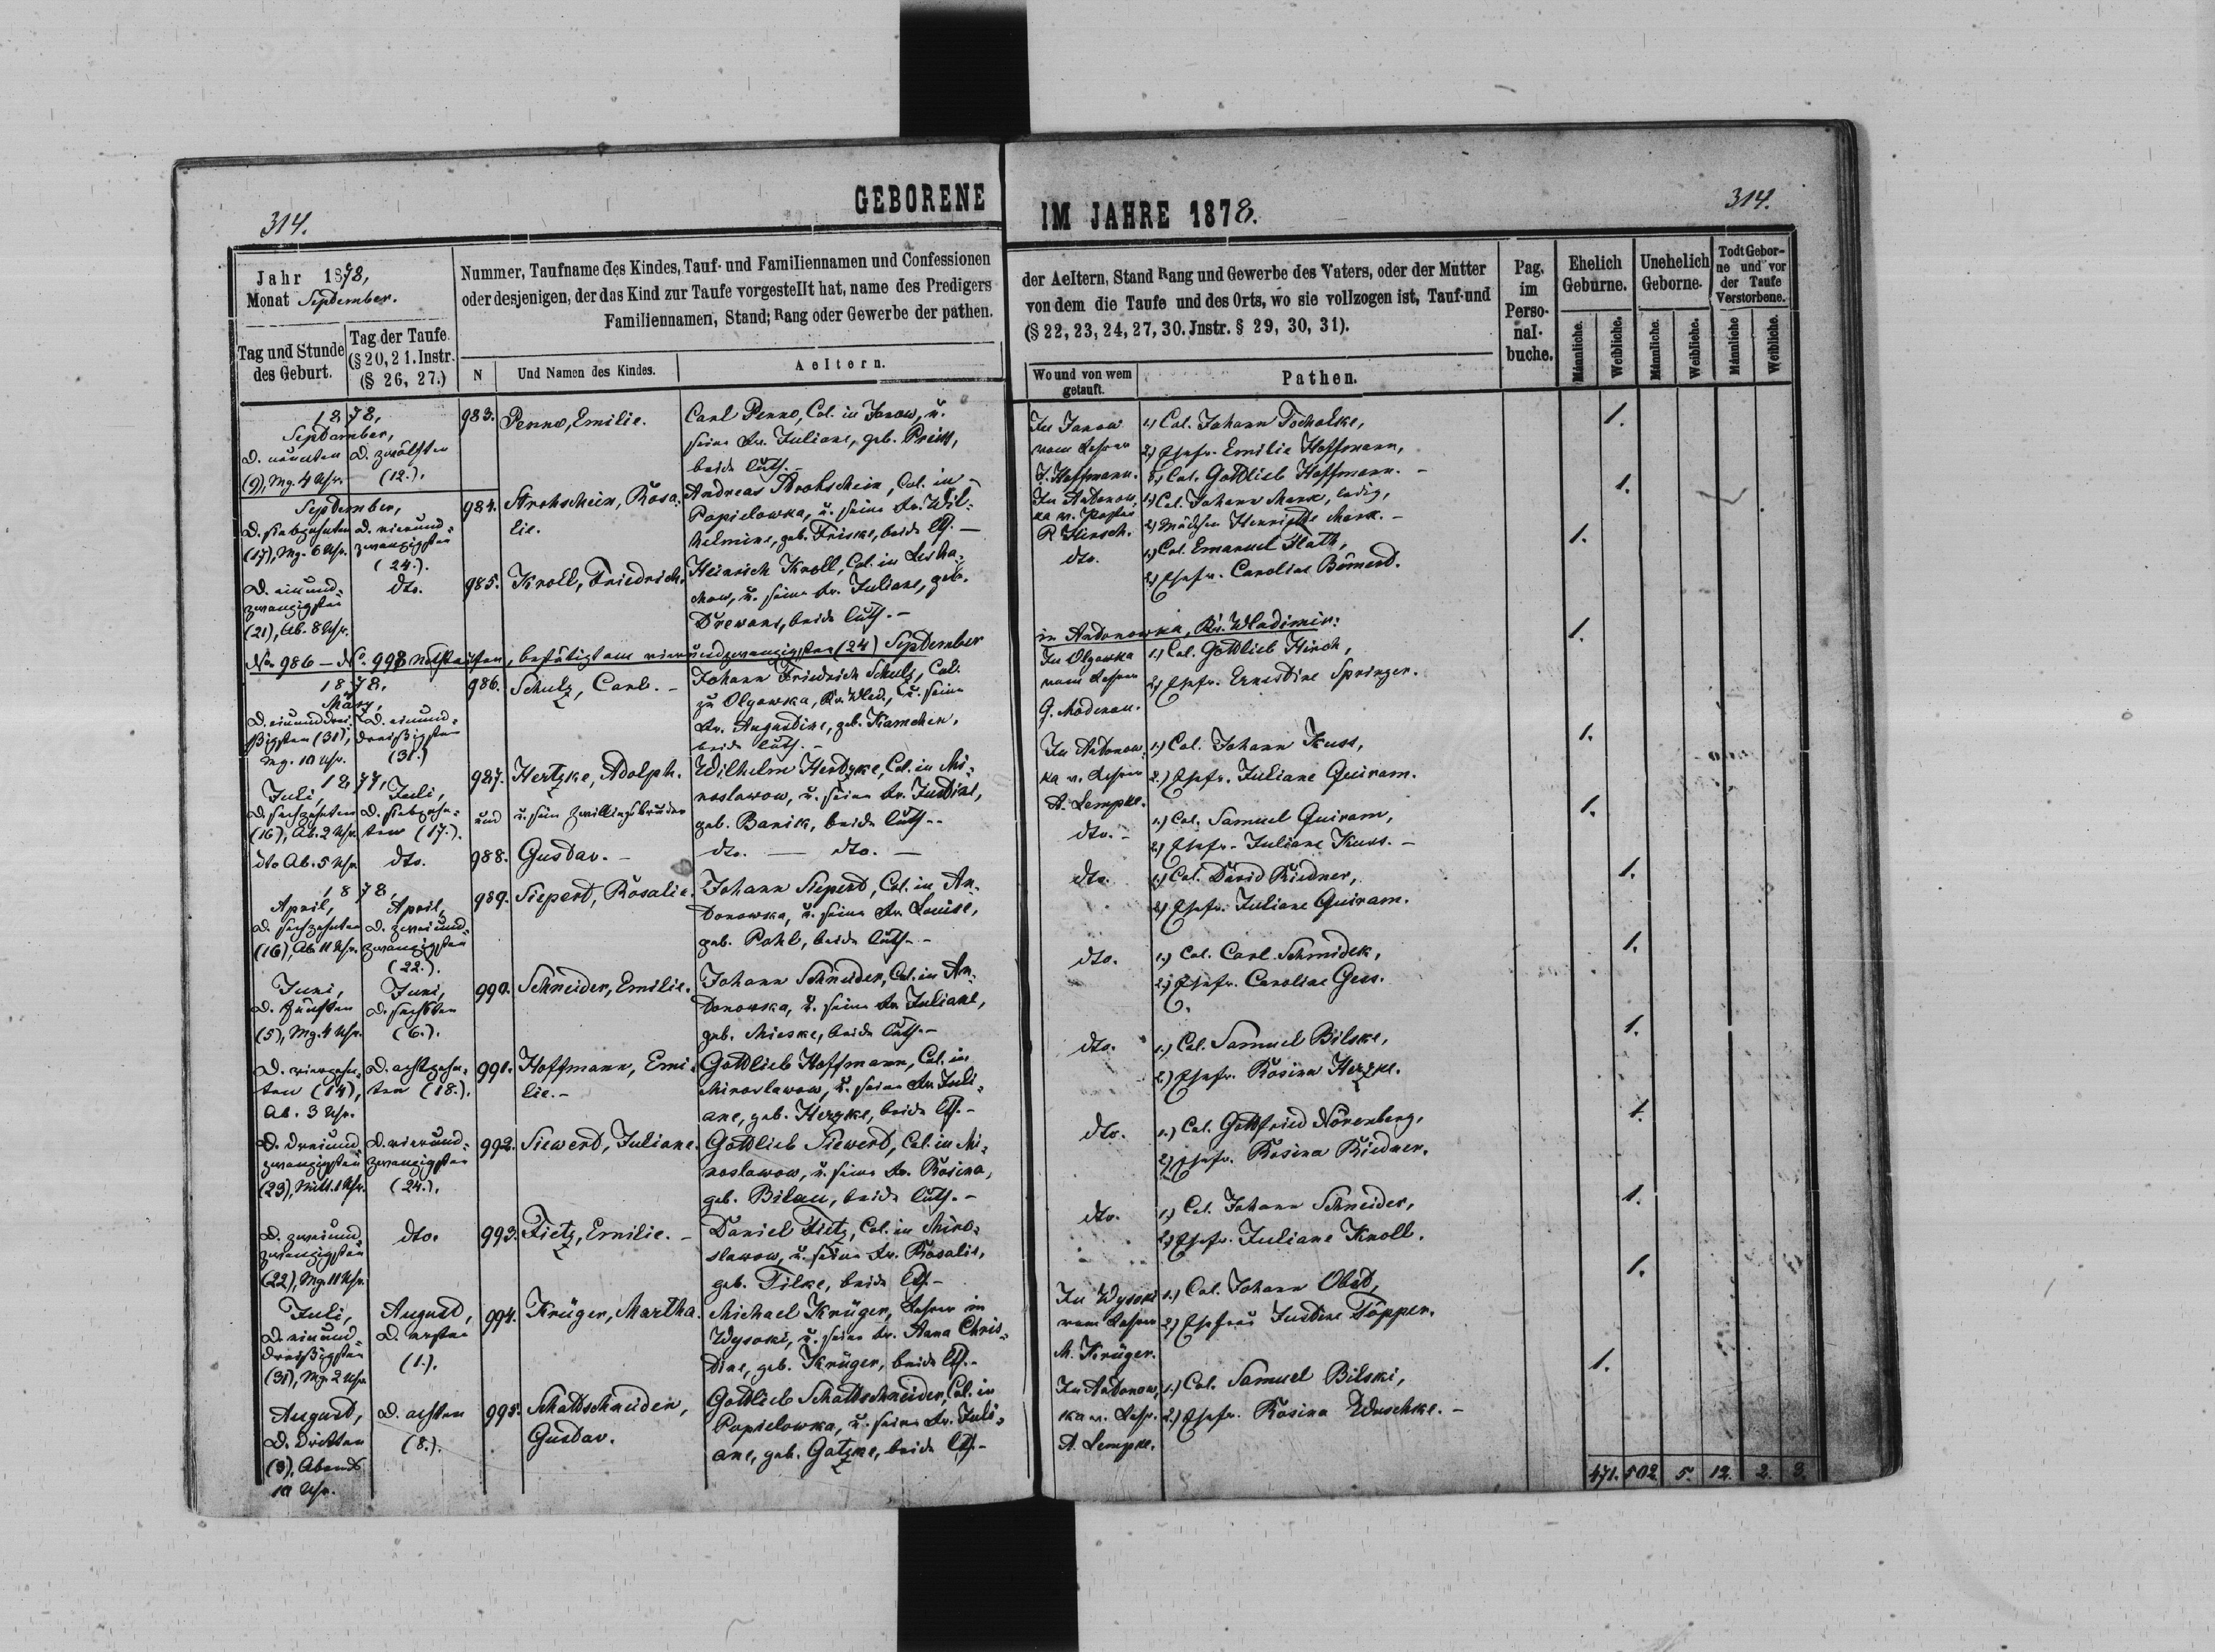 GEBORENE
314.
Jahr 1878,
Monat September.
Tag und Stunde des Geburt.
Tag der Taufe. (§ 20, 21. Instr. (§ 26, 27.)
Nummer, Taufname des Kindes, Tauf- und Familiennamen und Confessionen
oder desjenigen, der das Kind zur Taufe vorgestellt hat, name des Predigers
Familiennamen, Stand; Rang oder Gewerbe der pathen.
N
Und Namen des Kindes.
Aeltern.
1878,
September,
D. neunten D. zwölften
(9), Mg. 4 Uhr. (12.).
983. Penno, Emilie.
Carl Penno, Col. in Janow, u.
seine Fr. Juliane, geb.
beide luth.
September,
D. siebzehnten D. vierund-
(17), Mg. 6 Uhr. zwanzigsten
(24.).
984. Strohschein, Rosa-
lie.
Andreas Strohschein, Col. in
Popielowka, u. seine Fr. Wil-
helmine, geb. Friske, beide lth. —
D. einund- dto.
zwanzigsten
(21), Ab. 8 Uhr.
985. Kroll, Friedrich.
Heinrich Kroll, Col. in
u. seine Fr. Juliane, geb.
Drewans, beide luth. —
No. 986 — No. 998 Nothtaufen, bestätigt am vierundzwanzigsten (24) September
1878,
März,
D. einunddrei- D. einund-
ßigsten (31), dreißigsten
Mg. 10 Uhr. (31.)
986. Schulz, Carl. —
Johann Friedrich Schulz, Col.
zu Olgowka, Kr. Wlad., u. seine
Fr. Augustine, geb. Kamchen,
beide luth. —
1877,
Juli, Juli,
D. sechzehnten D. siebzehn-
(16), Ab. 2 Uhr. ten (17.).
987. Hertzke, Adolph.
und u. sein Zwillingsbruder
Wilhelm Hertzke, Col. in Mi-
roslawow, u. seine Fr. Justine,
geb. Banik, beide luth. —
dto Ab. 5 Uhr dto.
988. Gustav. —
dto. — dto. —
1878,
April, April,
D. sechzehnten D. zweiund-
(16), Ab. 11 Uhr. zwanzigsten
(22.).
989. Siepert, Rosalie.
Johann Siepert, Col. in An-
tonowka, u. seine Fr. Louise,
geb. Pohl, beide luth. —
Juni, Juni,
D. fünften D. sechsten
(5), Mg. 4 Uhr. (6.).
990. Schneider, Emilie.
Johann Schneider, Col. in An-
tonowka, u. seine Fr. Juliane,
geb. Mieske, beide luth. —
D. vierzehn- D. achtzehn-
ten (14), ten (18.).
Ab. 3 Uhr.
991. Hoffmann, Emi-
lie. —
Gottlieb Hoffmann, Col. in
Miroslawow, u. seine Fr. Juli-
ane, geb. Herzke, beide lth. —
D. dreiund- D. vierund-
zwanzigsten zwanzigsten
(23), Mitt. 1 Uhr. (24.).
992. Siewert, Juliane.
Gottlieb Siewert, Col. in Mi-
roslawow, u. seine Fr. Rosina,
geb. Bilau, beide luth. —
D. zweiund- dto.
zwanzigsten
(22), Mg. 11 Uhr.
993. Tietz, Emilie. —
Daniel Tietz, Col. in Miro-
slawow, u. seine Fr. Rosalie,
geb. Filke, beide lth. —
Juli, August,
D. einund- D. ersten
dreißigsten (1.).
(31), Mg. 2 Uhr.
994. Krüger, Martha.
Michael Krüger, Lehrer in
Wysoki, u. seine Fr. Anna Chris-
tine, geb. Krüger, beide lth. —
August, D. achten
D. dritten (8.).
(3), Abends
10 Uhr.
995. Schattschneider,
Gustav.
Gottlieb Schattschneider, Col. in
Popielowka, u. seine Fr. Juli-
ane, geb. Gatzke, beide lth. —
IM JAHRE 1878.
314.
der Aeltern, Stand Rang und Gewerbe des Vaters, oder der Mutter
von dem die Taufe und des Orts, wo sie vollzogen ist, Tauf-und
(§ 22, 23, 24, 27, 30. Jnstr. § 29, 30, 31).
Wo und von wem getauft.
Pathen.
Pag. im Perso-nal-buche.
Ehelich Geburne.
Unehelich Geborne.
Todt Gebor-ne und vor der Taufe Verstorbene.
Männliche.
Weibliche.
Männliche.
Weibliche.
Männliche
Weibliche.
In Janow 1.) Col. Johann Tocholke, 1.
vom Lehrer 2.) Ehefr. Emilie Hoffmann,
J. Hoffmann. 3.) Col. Gottlieb Hoffmann. —
In Antonow- 1.) Col. Johann Mark, ledig, 1.
ka v. Pastor 2.) Mädchen Henriette Mark. —
R Hirsch.
dto. 1.) Col. Emanuel Flath, 1.
2.) Ehefr. Caroline Bömert.
in Antonowka, Kr. Wladimir:
In Olgowka 1.) Col. Gottlieb Hirch, 1.
vom Lehrer 2.) Ehefr. Ernestine Springer.
G. Modenau.
In Antonow- 1.) Col. Johann Kuss, 1.
ka v. Lehrer 2.) Ehefr. Juliane Quiram.
A. Lempke.
dto. — 1.) Col. Samuel Quiram, 1.
2.) Ehefr. Juliane Kuss. —
dto. 1.) Col. David Riedner, 1.
2.) Ehefr. Juliane Quiram.
dto. 1.) Col. Carl Schmidtk, 1.
2.) Ehefr. Caroline Gess.
dto. 1.) Col. Samuel Bilske, 1.
2.) Ehefr. Rosina Herzke.
dto. 1.) Col. Gottfried Nörenberg, 1.
2.) Ehefr. Rosina Riedner.
dto. 1.) Col. Johann Schneider, 1.
2.) Ehefr. Juliane Knoll.
In Wysoki 1.) Col. Johann Obst, 1.
vom Lehrer 2.) Ehefrau Justine Töpper.
M. Krüger.
In Antonow- 1.) Col. Samuel Bilski, 1.
ka v. Lehr. 2.) Ehefr. Rosina Wuschke. —
A. Lempke.
471. 502. 5. 12. 2. 3.